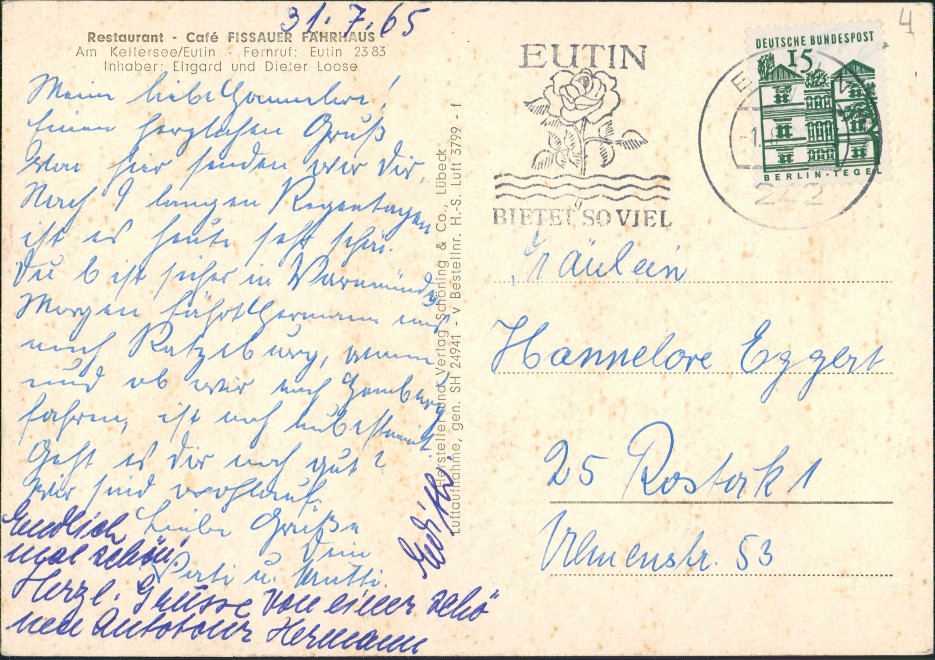 31.7.65
Restaurant - Café FISSAUER FÄHRHAUS
Am Kellersee/Eutin - Fernruf: Eutin 23 83
Inhaber: Eligard und Dieter Loose
Meine liebe Hannelore!
Einen herzlichen Gruß
von hier senden wir Dir.
Nach 9 langen Regentagen
ist es heute sehr schön.
Du bist sicher in Warnemünde
Morgen fährt Hermann
nach Ratzeburg, wann
und ob wir nach Hamburg
fahren, ist noch unbestimmt.
Geht es Dir noch gut?
Wir sind wohlauf.
Liebe Grüße
Dein
Vati u. Mutti.
Edith
Endlich
mal schön!
Herzl. Grüsse von einer schö
nen Autotour Hermann
Hersteller und Verlag Schöning & Co., Lübeck
Luftaufnahme, gen. SH 24941 - v Bestellnr. H.-S. Luft 3799 - f
EUTIN
BIETET SO VIEL
242
DEUTSCHE BUNDESPOST
15
BERLIN-TEGEL
4
Fräulein
Hannelore Eggert
25 Rostock 1
Ulmenstr. 53